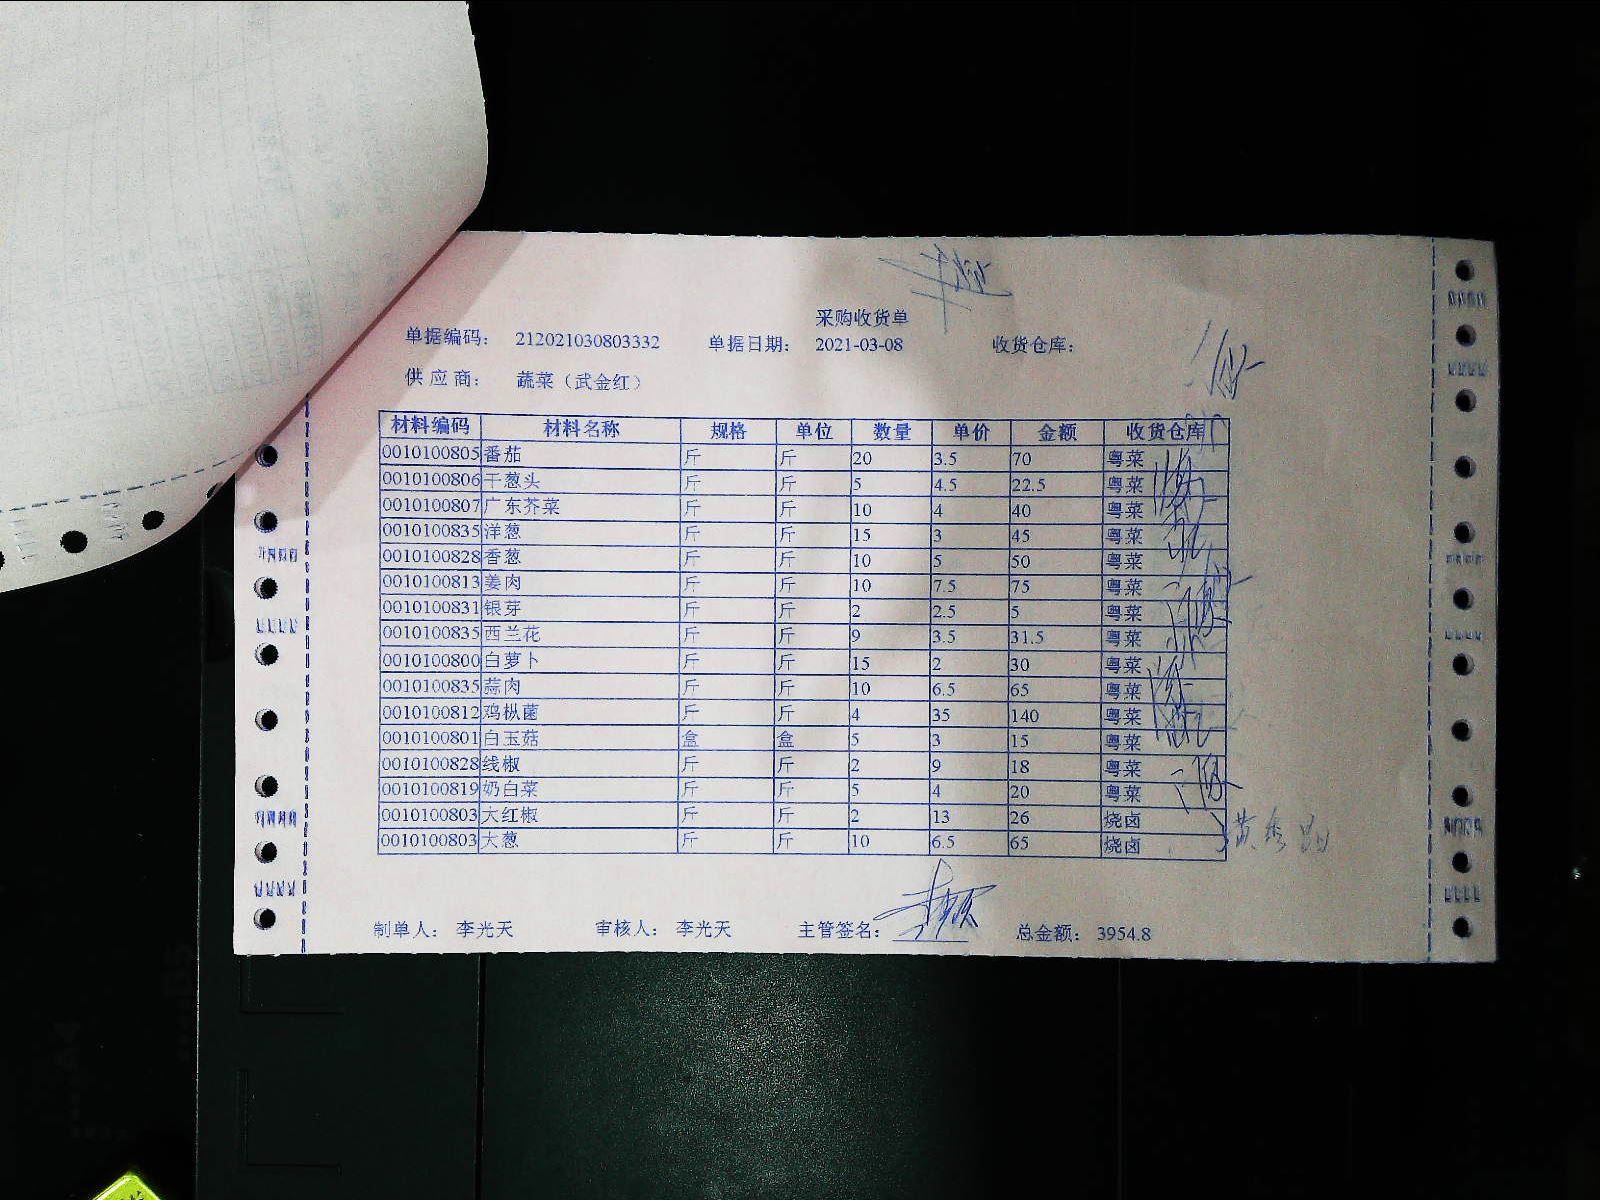 采购收货单
单据编码： 212021030803332 单据日期： 2021-03-08 收货仓库：
供 应 商： 蔬菜（武金红）
材料编码 材料名称 规格 单位 数量 单价 金额 收货仓库
0010100805 番茄 斤 斤 20 3.5 70 粤菜
0010100806 干葱头 斤 斤 5 4.5 22.5 粤菜
0010100807 广东芥菜 斤 斤 10 4 40 粤菜
0010100835 洋葱 斤 斤 15 3 45 粤菜
0010100828 香葱 斤 斤 10 5 50 粤菜
0010100813 姜肉 斤 斤 10 7.5 75 粤菜
0010100831 银芽 斤 斤 2 2.5 5 粤菜
0010100835 西兰花 斤 斤 9 3.5 31.5 粤菜
0010100800 白萝卜 斤 斤 15 2 30 粤菜
0010100835 蒜肉 斤 斤 10 6.5 65 粤菜
0010100812 鸡枞菌 斤 斤 4 35 140 粤菜
0010100801 白玉菇 盒 盒 5 3 15 粤菜
0010100828 线椒 斤 斤 2 9 18 粤菜
0010100819 奶白菜 斤 斤 5 4 20 粤菜
0010100803 大红椒 斤 斤 2 13 26 烧卤
0010100803 大葱 斤 斤 10 6.5 65 烧卤
制单人： 李光天 审核人： 李光天 主管签名： 总金额： 3954.8